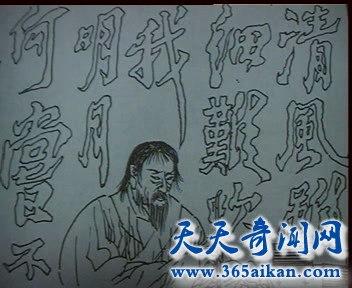 清風雖
細難吹
我
明月
何嘗不
天天奇闻网
www.365aikan.com